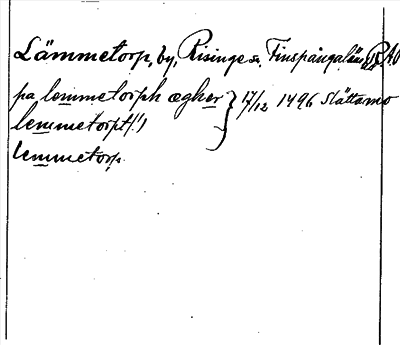 Lämmetorp, by, Risinge sn. Finspångalän ÖG
pa lemmetorph ægher } 17/12 1496 Slättamo
lemmetorpt(!)
lemmetorp